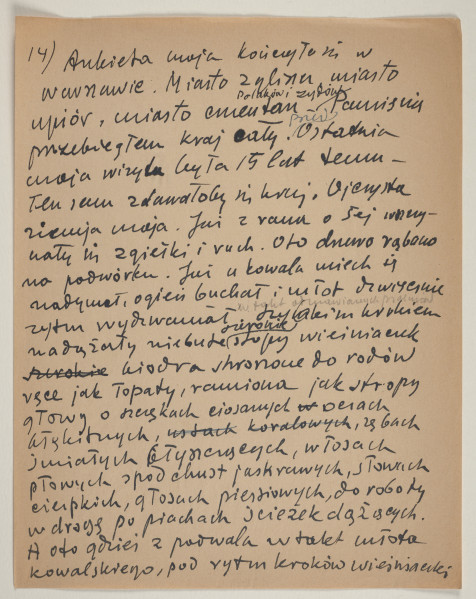 14) Ankieta moja kończyła się w
warszawie. Miasto zglisz, miasto
Polaków i żydów
upiór, miasto cmentarz. Pamięcią
przebiegłem kraj cały. Ostatnia
moja wizyta była 15 lat temu –
Ten sam zdawałoby się kraj. Ojczysta
ziemia moja. Już z rana o 5ej wszczy-
nały się zgiełki i ruch. Oto drewo rąbano
na podwórku. Już u kowala miech się
nadymał, ogień buchał i młot dźwięcznie
w takt odmawianych
rytm wydzwaniał. Szybkim krokiem
szerokie
nadążały niebute stopy wieśniaczek
szerokie biodra stworzone do rodów
ręce jak łopaty, ramiona jak stropy
głowy o szczękach ciosanych w oczach
błękitnych, ustach koralowych, zębach
śmiałych błyszczących, włosach
płowych spod chust jaskrawych, słowach
cierpkich, głosach piersiowych, do roboty
w drogę po piachach ścieżek dążących.
A oto gdzieś z podwala w takt młota
kowalskiego, pod rytm kroków wieśniaczki